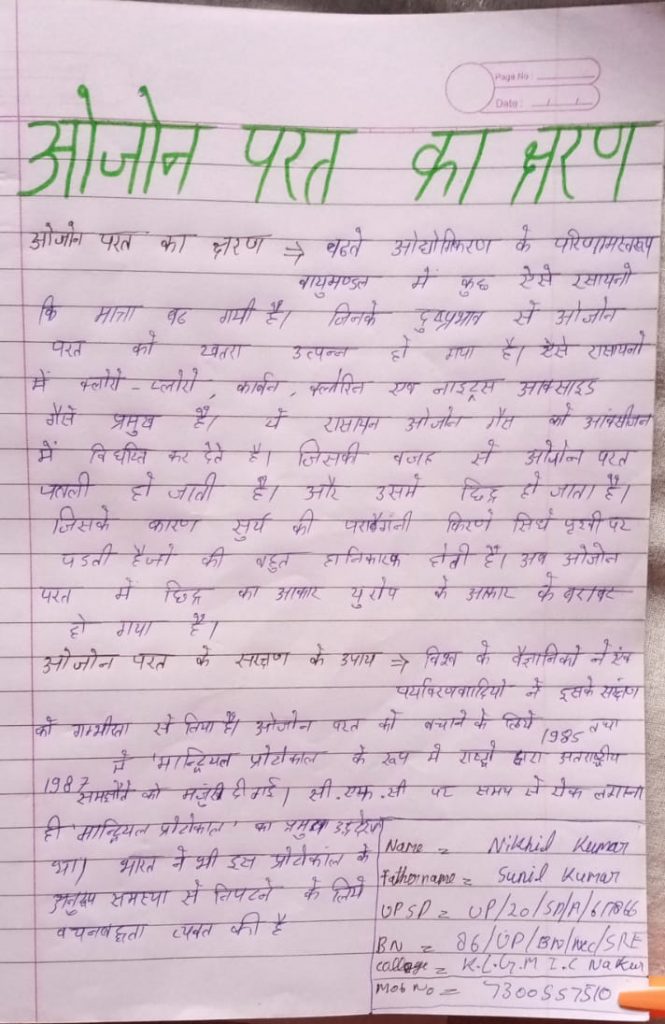 Page No :
Date : / /
ओजोन परत का क्षरण
ओजोन परत का क्षरण ⇒ बढते औद्योगिकरण के परिणामस्वरूप
वायुमण्डल में कुछ ऐसे रसायनो
कि मात्ता बढ गयी है। जिनके दुष्प्रभाव से ओजोन
परत को खतरा उत्पन्न हो गया है। ऐसे रासायनो
में क्लोरो - फ्लोरो, कार्बन, क्लोरिन एव नाइट्रस आक्साइड
गैसें प्रमुख है। ये रासायन ओजोन गैस को आंक्सीजन
में विघटित कर देते है। जिसकी वजह से ओजोन परत
पतली हो जाती है। और उसमे छिद्र हो जाता है।
जिसके कारण सुर्य की पराबैगंनी किरणे सिधे पृथ्वी पर
पडती है जो की बहुत हानिकारक होती है। अब ओजोन
परत में छिद्र का आकार युरोप के आकार के बराबर
हो गया है।
ओजोन परत के सरक्षण के उपाय ⇒ विश्व के वैज्ञानिको ने एंव
पर्यावरणवादियो ने इसके संक्षण
को गम्भीरता से लिया है। ओजोन परत को बचाने के लिये 1985 तथा
1987 में 'मान्ट्रियल प्रोटोकाल के रूप मे राष्ट्रो द्वारा अतराष्ट्रीय
समझौते को मजुंरी दी गई। सी.एफ.सी पर समय से रोक लगाना
ही 'मान्ट्रियल प्रोटोकाल' का प्रमुख उद्देश्य
था। भारत ने भी इस प्रोटोकाल के
अनुरूप समस्या से निपटने के लिये
वचनबद्धता व्यक्त की है
Name = Nikhil Kumar
Father name = Sunil Kumar
UPSD = UP/20/SD/A/
BN = 86/UP/BN/Ncc/SRE
College = K.L.G.M I.C Nakur
Mob No = 7300557510